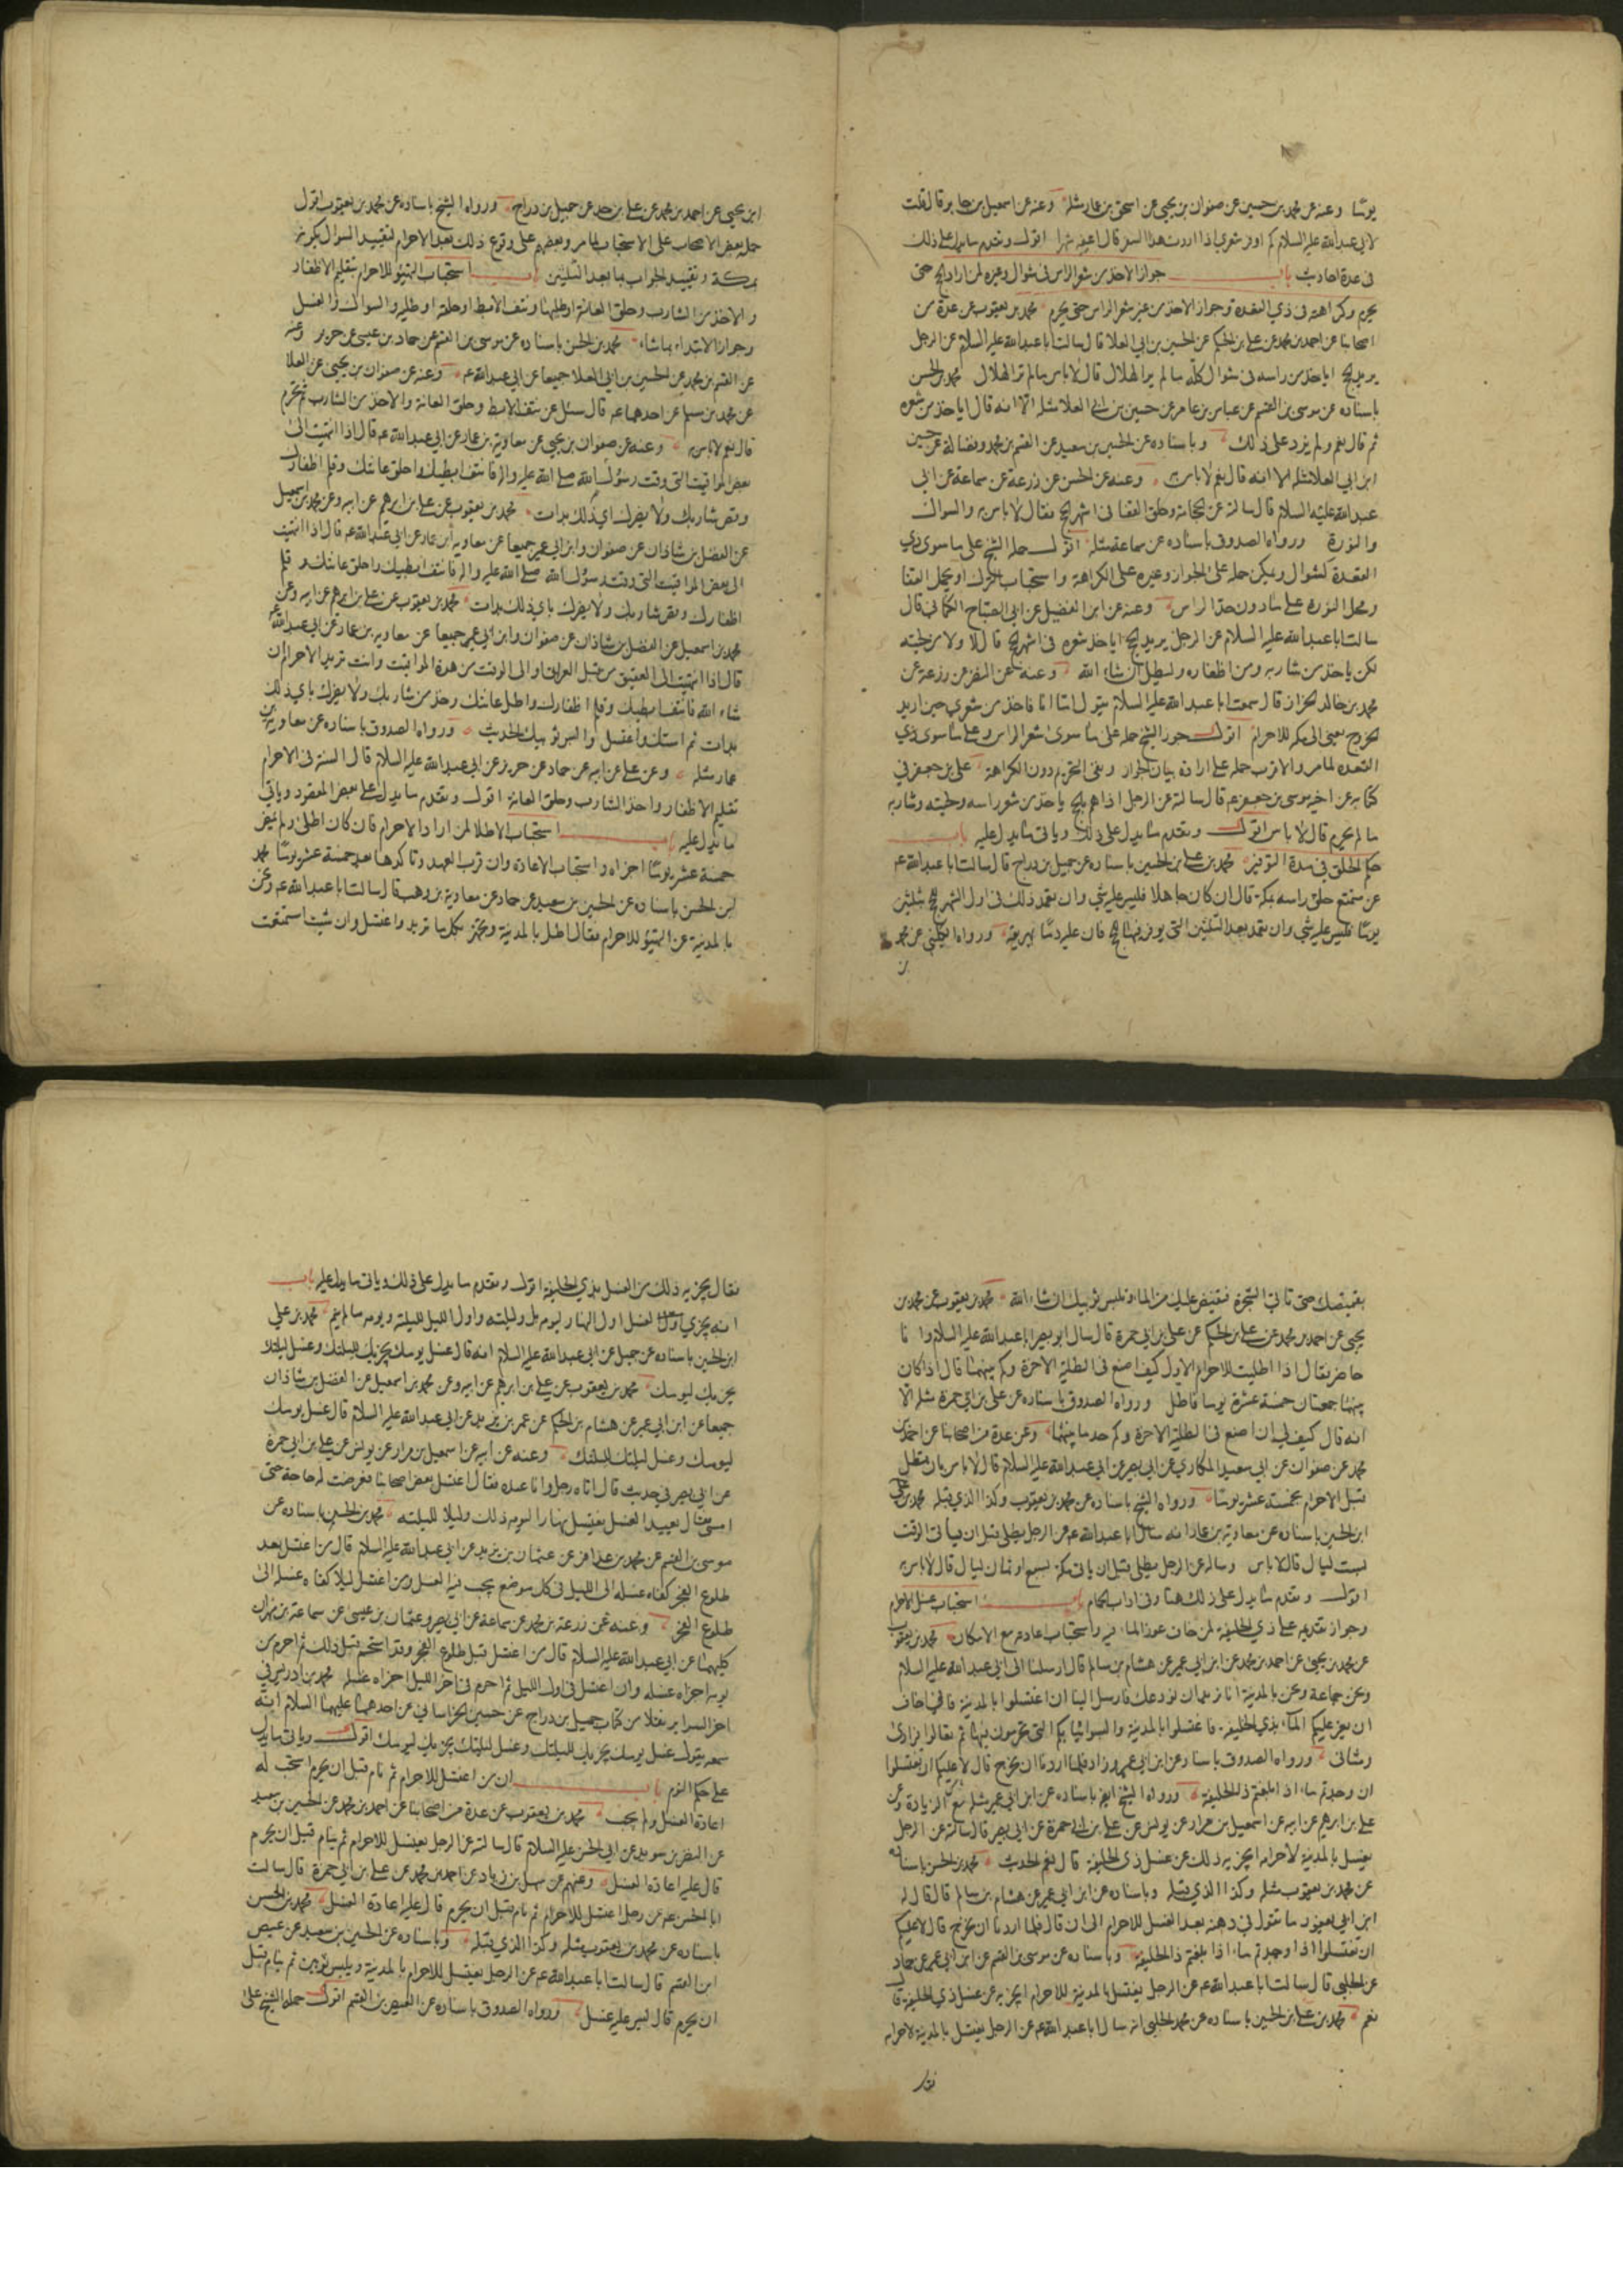 يوما وعنه عن محمد بن حسين عن صفوان بن يحيى عن اسحق بن عمار مثله وعنه عن اسمعيل بن جابر قال قلت
لابي عبدالله عليه السلام كم اوفر شعري اذا اردت هذا السفر قال اعفه شهرا اقول وتقدم ما يدل على ذلك
في عدة احاديث باب جواز الاخذ من شعر الراس في شوال وغيره لمن اراد الحج حتى
يحرم وكراهته في ذي القعدة وجواز الاخذ من غير شعر الراس حتى يحرم محمد بن يعقوب عن عدة من
اصحابنا عن احمد بن محمد عن علي بن الحكم عن الحسين بن ابي العلا قال سالت ابا عبدالله عليه السلام عن الرجل
يريد الحج اياخذ من راسه في شوال كله ما لم ير الهلال قال لا باس ما لم ير الهلال محمد بن الحسن
باسناده عن موسى بن القسم عن عباس بن عامر عن حسين بن ابي العلا مثله الا انه قال اياخذ من شعره
ثم قال نعم ولم يزد على ذلك وباسناده عن الحسين بن سعيد عن القسم بن محمد وفضالة عن حسين
ابن ابي العلا مثله الا انه قال نعم لا باس به وعنه عن الحسن عن زرعة عن سماعة عن ابي
عبدالله عليه السلام قال سالته عن الحجامة وحلق القفا في اشهر الحج فقال لا باس به والسواك
والنورة ورواه الصدوق باسناده عن سماعة مثله اقول حمله الشيخ على ما سوى ذي
القعدة كشوال ويمكن حمله على الجواز وغيره على الكراهة واستحباب الترك او يحمل القفا
ومحل النورة على ما دون حد الراس وعنه عن ابن الفضيل عن ابي الصباح الكناني قال
سالت ابا عبدالله عليه السلام عن الرجل يريد الحج اياخذ شعره في اشهر الحج قال لا ولا من لحيته
لكن ياخذ من شاربه ومن اظفاره وليطل ان شاء الله وعنه عن النضر عن زرعة عن
محمد بن خالد الخزاز قال سمعت ابا عبدالله عليه السلام يقول اما انا فاخذ من شعري حين اريد
الخروج يعني الى مكة للاحرام اقول جوز الشيخ حمله على ما سوى شعر الراس وعلى ما سوى ذي
القعدة لما مر والاقرب حمله على ارادة بيان الجواز ونفي التحريم دون الكراهة علي بن جعفر في
كتابه عن اخيه موسى بن جعفر عم قال سالته عن الرجل اذا هم بالحج ياخذ من شعر راسه ولحيته وشاربه
ما لم يحرم قال لا باس اقول وتقدم ما يدل على ذلك وياتي ما يدل عليه باب
حكم الحلق في مدة التوفير محمد بن علي بن الحسين باسناده عن جميل بن دراج قال سالت ابا عبدالله عم
عن متمتع حلق راسه بمكة قال ان كان جاهلا فليس عليه شي وان تعمد ذلك في اول الشهر الحج بثلثين
يوما فليس عليه شي وان تعمد بعد الثلثين التي يوفر فيها الحج فان عليه دما يهريقه ورواه الكليني عن محمد
بن
ابن يحيى عن احمد بن محمد عن علي بن حديد عن جميل بن دراج ورواه الشيخ باسناده عن محمد بن يعقوب اقول
حمله بعض الاصحاب على الاستحباب لما مر وبعضهم على وقوع ذلك بعد الاحرام لتقييد السوال بكونه
بمكة وتقييد الجواب بما بعد الثلثين باب استحباب التهيؤ للاحرام بتقليم الاظفار
والاخذ من الشارب وحلق العانة او طليها ونتف الابط او حلقه او طليه والسواك والغسل
وجواز الابتداء بما شاء محمد بن الحسن باسناده عن موسى بن القسم عن حماد بن عيسى عن حريز وعنه
عن القسم بن محمد عن الحسين بن ابي العلا جميعا عن ابي عبدالله عم وعنه عن صفوان بن يحيى عن العلا
عن محمد بن مسلم عن احدهما عم قال سئل عن نتف الابط وحلق العانة والاخذ من الشارب ثم يحرم
قال نعم لا باس به وعنه عن صفوان بن يحيى عن معاوية بن عمار عن ابي عبدالله عم قال اذا انتهيت الى
بعض المواقيت التي وقت رسول الله صلى الله عليه واله فانتف ابطيك واحلق عانتك وقلم اظفارك
وقص شاربك ولا يضرك اي ذلك بدات محمد بن يعقوب عن علي بن ابرهيم عن ابيه وعن محمد بن اسمعيل
عن الفضل بن شاذان عن صفوان وابن ابي عمير جميعا عن معاوية بن عمار عن ابي عبدالله عم قال اذا انتهيت
الى بعض المواقيت التي وقت رسول الله صلى الله عليه واله فانتف ابطيك واحلق عانتك وقلم
اظفارك وقص شاربك ولا يضرك باي ذلك بدات محمد بن يعقوب عن علي بن ابرهيم عن ابيه وعن
محمد بن اسمعيل عن الفضل بن شاذان عن صفوان وابن ابي عمير جميعا عن معاوية بن عمار عن ابي عبدالله عم
قال اذا انتهيت الى العقيق من قبل العراق او الى الوقت من هذه المواقيت وانت تريد الاحرام ان
شاء الله فانتف ابطيك وقلم اظفارك واطل عانتك وخذ من شاربك ولا يضرك باي ذلك
بدات ثم استك واغتسل والبس ثوبيك الحديث ورواه الصدوق باسناده عن معاوية بن
عمار مثله وعن علي عن ابيه عن حماد عن حريز عن ابي عبدالله عليه السلام قال السنة في الاحرام
تقليم الاظفار واخذ الشارب وحلق العانة اقول وتقدم ما يدل على بعض المقصود وياتي
ما يدل عليه باب استحباب الاطلا لمن اراد الاحرام فان كان اطلى ولم تمض
خمسة عشر يوما اجزاه واستحباب الاعادة وان قرب العهد وتاكدها بعد خمسة عشر يوما محمد
ابن الحسن باسناده عن الحسين بن سعيد عن حماد عن معاوية بن وهب قال سالت ابا عبدالله عم ونحن
بالمدينة عن التهيؤ للاحرام فقال اطل بالمدينة وتجهز بكل ما تريد واغتسل وان شئت استمتعت
بقميصك حتى تاتي الشجرة فتفيض عليك من الماء وتلبس ثوبيك ان شاء الله محمد بن يعقوب عن محمد بن
يحيى عن احمد بن محمد عن علي بن الحكم عن علي بن ابي حمزة قال سال ابو بصير ابا عبدالله عليه السلام وانا
حاضر فقال اذا اطليت للاحرام الاول كيف اصنع في الطلية الاخرة وكم بينهما قال اذا كان
بينهما جمعتان خمسة عشرة يوما فاطل ورواه الصدوق باسناده عن علي بن ابي حمزة مثله الا
انه قال كيف لي ان اصنع في الطلية الاخرة وكم حد ما بينهما وعن عدة من اصحابنا عن احمد بن
محمد عن صفوان عن ابي سعيد المكاري عن ابي بصير عن ابي عبدالله عليه السلام قال لا باس بان تطلى
قبل الاحرام بخمسة عشر يوما ورواه الشيخ باسناده عن محمد بن يعقوب وكذا الذي قبله محمد بن علي
ابن الحسين باسناده عن معاوية بن عمار انه سال ابا عبدالله عم عن الرجل يطلي قبل ان ياتي الوقت
بست ليال قال لا باس وساله عن الرجل يطلي قبل ان ياتي مكة بسبع او ثمان ليال قال لا باس به
اقول وتقدم ما يدل على ذلك هنا وفي اداب الحمام باب استحباب غسل الاحرام
وجواز تقديمه على ذي الحليفة لمن خاف عوز الماء فيه واستحباب اعادته مع الامكان محمد بن يعقوب
عن محمد بن يحيى عن احمد بن محمد عن ابن ابي عمير عن هشام بن سالم قال ارسلنا الى ابي عبدالله عليه السلام
ونحن جماعة ونحن بالمدينة انا نريد ان نودعك فارسل الينا ان اغتسلوا بالمدينة فاني اخاف
ان يعز عليكم الماء بذي الحليفة فاغتسلوا بالمدينة والبسوا ثيابكم التي تحرمون فيها ثم تعالوا فرادى
ومثاني ورواه الصدوق باسناده عن ابن ابي عمير وزاد فلما اردنا ان نخرج قال لا عليكم ان تغتسلوا
ان وجدتم ماء اذا بلغتم ذا الحليفة ورواه الشيخ ايضا باسناده عن ابن ابي عمير مثله مع الزيادة وعن
علي بن ابرهيم عن ابيه عن اسمعيل بن مرار عن يونس عن علي بن ابي حمزة عن ابي بصير قال سالته عن الرجل
يغتسل بالمدينة لاحرامه ايجزيه ذلك عن غسل ذي الحليفة قال نعم الحديث محمد بن الحسن باسناده
عن محمد بن يعقوب مثله وكذا الذي قبله وباسناده عن ابن ابي عمير عن هشام بن سالم قال قال له
ابن ابي يعفور ما تقول في دهنه بعد الغسل للاحرام الى ان قال فلما اردنا ان نخرج قال لا عليكم
ان تغتسلوا اذا وجدتم ماء اذا بلغتم ذا الحليفة وباسناده عن موسى بن القسم عن ابن ابي عمير عن حماد
عن الحلبي قال سالت ابا عبدالله عم عن الرجل يغتسل بالمدينة للاحرام ايجزيه عن غسل ذي الحليفة قال
نعم محمد بن علي بن الحسين باسناده عن محمد الحلبي انه سال ابا عبدالله عم عن الرجل يغتسل بالمدينة لاحرامه
فقال
فقال يجزيه ذلك من الغسل بذي الحليفة اقول وتقدم ما يدل على ذلك وياتي ما يدل عليه باب
انه يجزي الغسل اول النهار ليومه وليلته واول الليل لليلته ويومه ما لم ينم محمد بن علي
ابن الحسين باسناده عن جميل عن ابي عبدالله عليه السلام انه قال غسل يومك يجزيك لليلتك وغسل ليلتك
يجزيك ليومك محمد بن يعقوب عن علي بن ابرهيم عن ابيه وعن محمد بن اسمعيل عن الفضل بن شاذان
جميعا عن ابن ابي عمير عن هشام بن الحكم عن عمر بن يزيد عن ابي عبدالله عليه السلام قال غسل يومك
ليومك وغسل ليلتك لليلتك وعنه عن ابيه عن اسمعيل بن مرار عن يونس عن علي بن ابي حمزة
عن ابي بصير في حديث قال اتاه رجل وانا عنده فقال اغتسل بعض اصحابنا فعرضت له حاجة حتى
امسى فقال يعيد الغسل يغتسل نهارا ليومه ذلك وليلا لليلته محمد بن الحسين باسناده عن
موسى بن القسم عن محمد بن عذافر عن عثمان بن يزيد عن ابي عبدالله عليه السلام قال من اغتسل بعد
طلوع الفجر كفاه غسله الى الليل في كل موضع يجب فيه الغسل ومن اغتسل ليلا كفاه غسله الى
طلوع الفجر وعنه عن زرعة بن محمد عن سماعة عن ابي بصير وعثمان بن عيسى عن سماعة بن مهران
كليهما عن ابي عبدالله عليه السلام قال من اغتسل قبل طلوع الفجر وقد استحم قبل ذلك ثم احرم من
يومه اجزاه غسله وان اغتسل في اول الليل ثم احرم في اخر الليل اجزاه غسله محمد بن ادريس في
اخر السراير نقلا من كتاب جميل بن دراج عن حسين الخراساني عن احدهما عليهما السلام انه
سمعه يقول غسل يومك يجزيك لليلتك وغسل ليلتك يجزيك ليومك اقول وياتي ما يدل
على حكم النوم باب ان من اغتسل للاحرام ثم نام قبل ان يحرم استحب له
اعادة الغسل ولم يجب محمد بن يعقوب عن عدة من اصحابنا عن احمد بن محمد عن الحسين بن سعيد
عن النضر بن سويد عن ابي الحسن عليه السلام قال سالته عن الرجل يغتسل للاحرام ثم ينام قبل ان يحرم
قال عليه اعادة الغسل وعنهم عن سهل بن زياد عن احمد بن محمد عن علي بن ابي حمزة قال سالت
ابا الحسن عم عن رجل اغتسل للاحرام ثم نام قبل ان يحرم قال عليه اعادة الغسل محمد بن الحسن
باسناده عن محمد بن يعقوب مثله وكذا الذي قبله وباسناده عن الحسين بن سعيد عن عيص
ابن القسم قال سالت ابا عبدالله عم عن الرجل يغتسل للاحرام بالمدينة ويلبس ثوبين ثم ينام قبل
ان يحرم قال ليس عليه غسل ورواه الصدوق باسناده عن العيص بن القسم اقول حمله الشيخ على